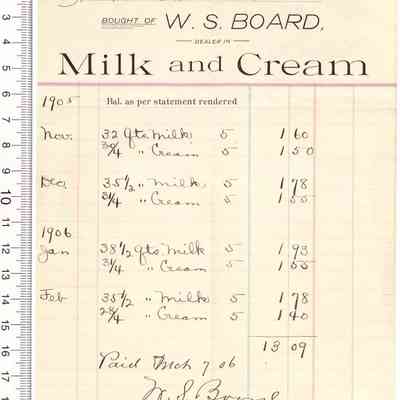 BOUGHT OF W. S. BOARD,
DEALER IN
Milk and Cream
1905 Bal. as per statement rendered
Nov. 32 qts Milk 5 1 60
30/4 " Cream 5 1 50
Dec. 35 1/2 " Milk 5 1 78
31/4 " Cream 5 1 55
1906
Jan 38 1/2 qts Milk 5 1 93
31/4 " Cream 5 1 55
Feb 35 1/2 " Milk 5 1 78
28/4 " Cream 5 1 40
13 09
Paid Mch 7 06
W. S. Board
3 4 5 6 7 8 9 10 11 12 13 14 15 16 17